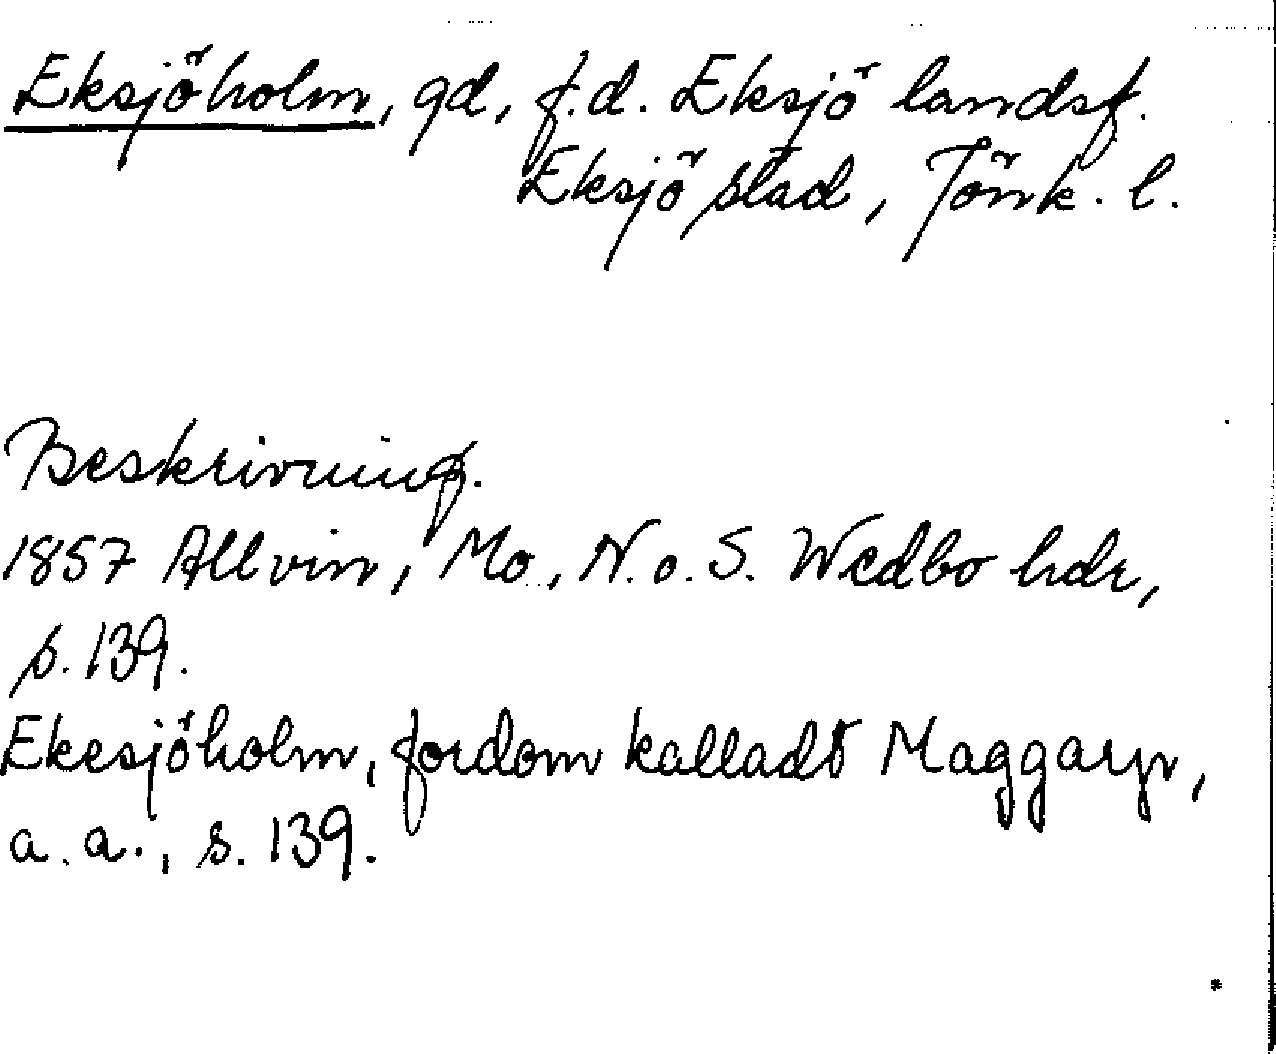 Eksjöholm, gd, f.d. Eksjö landsf.
Eksjö stad, Jönk. l.
Beskrivning.
1857 Allvin, Mo, N. o. S. Wedbo hdr,
s. 139.
Ekesjöholm, fordom kalladt Maggaryr,
a. a., s. 139.